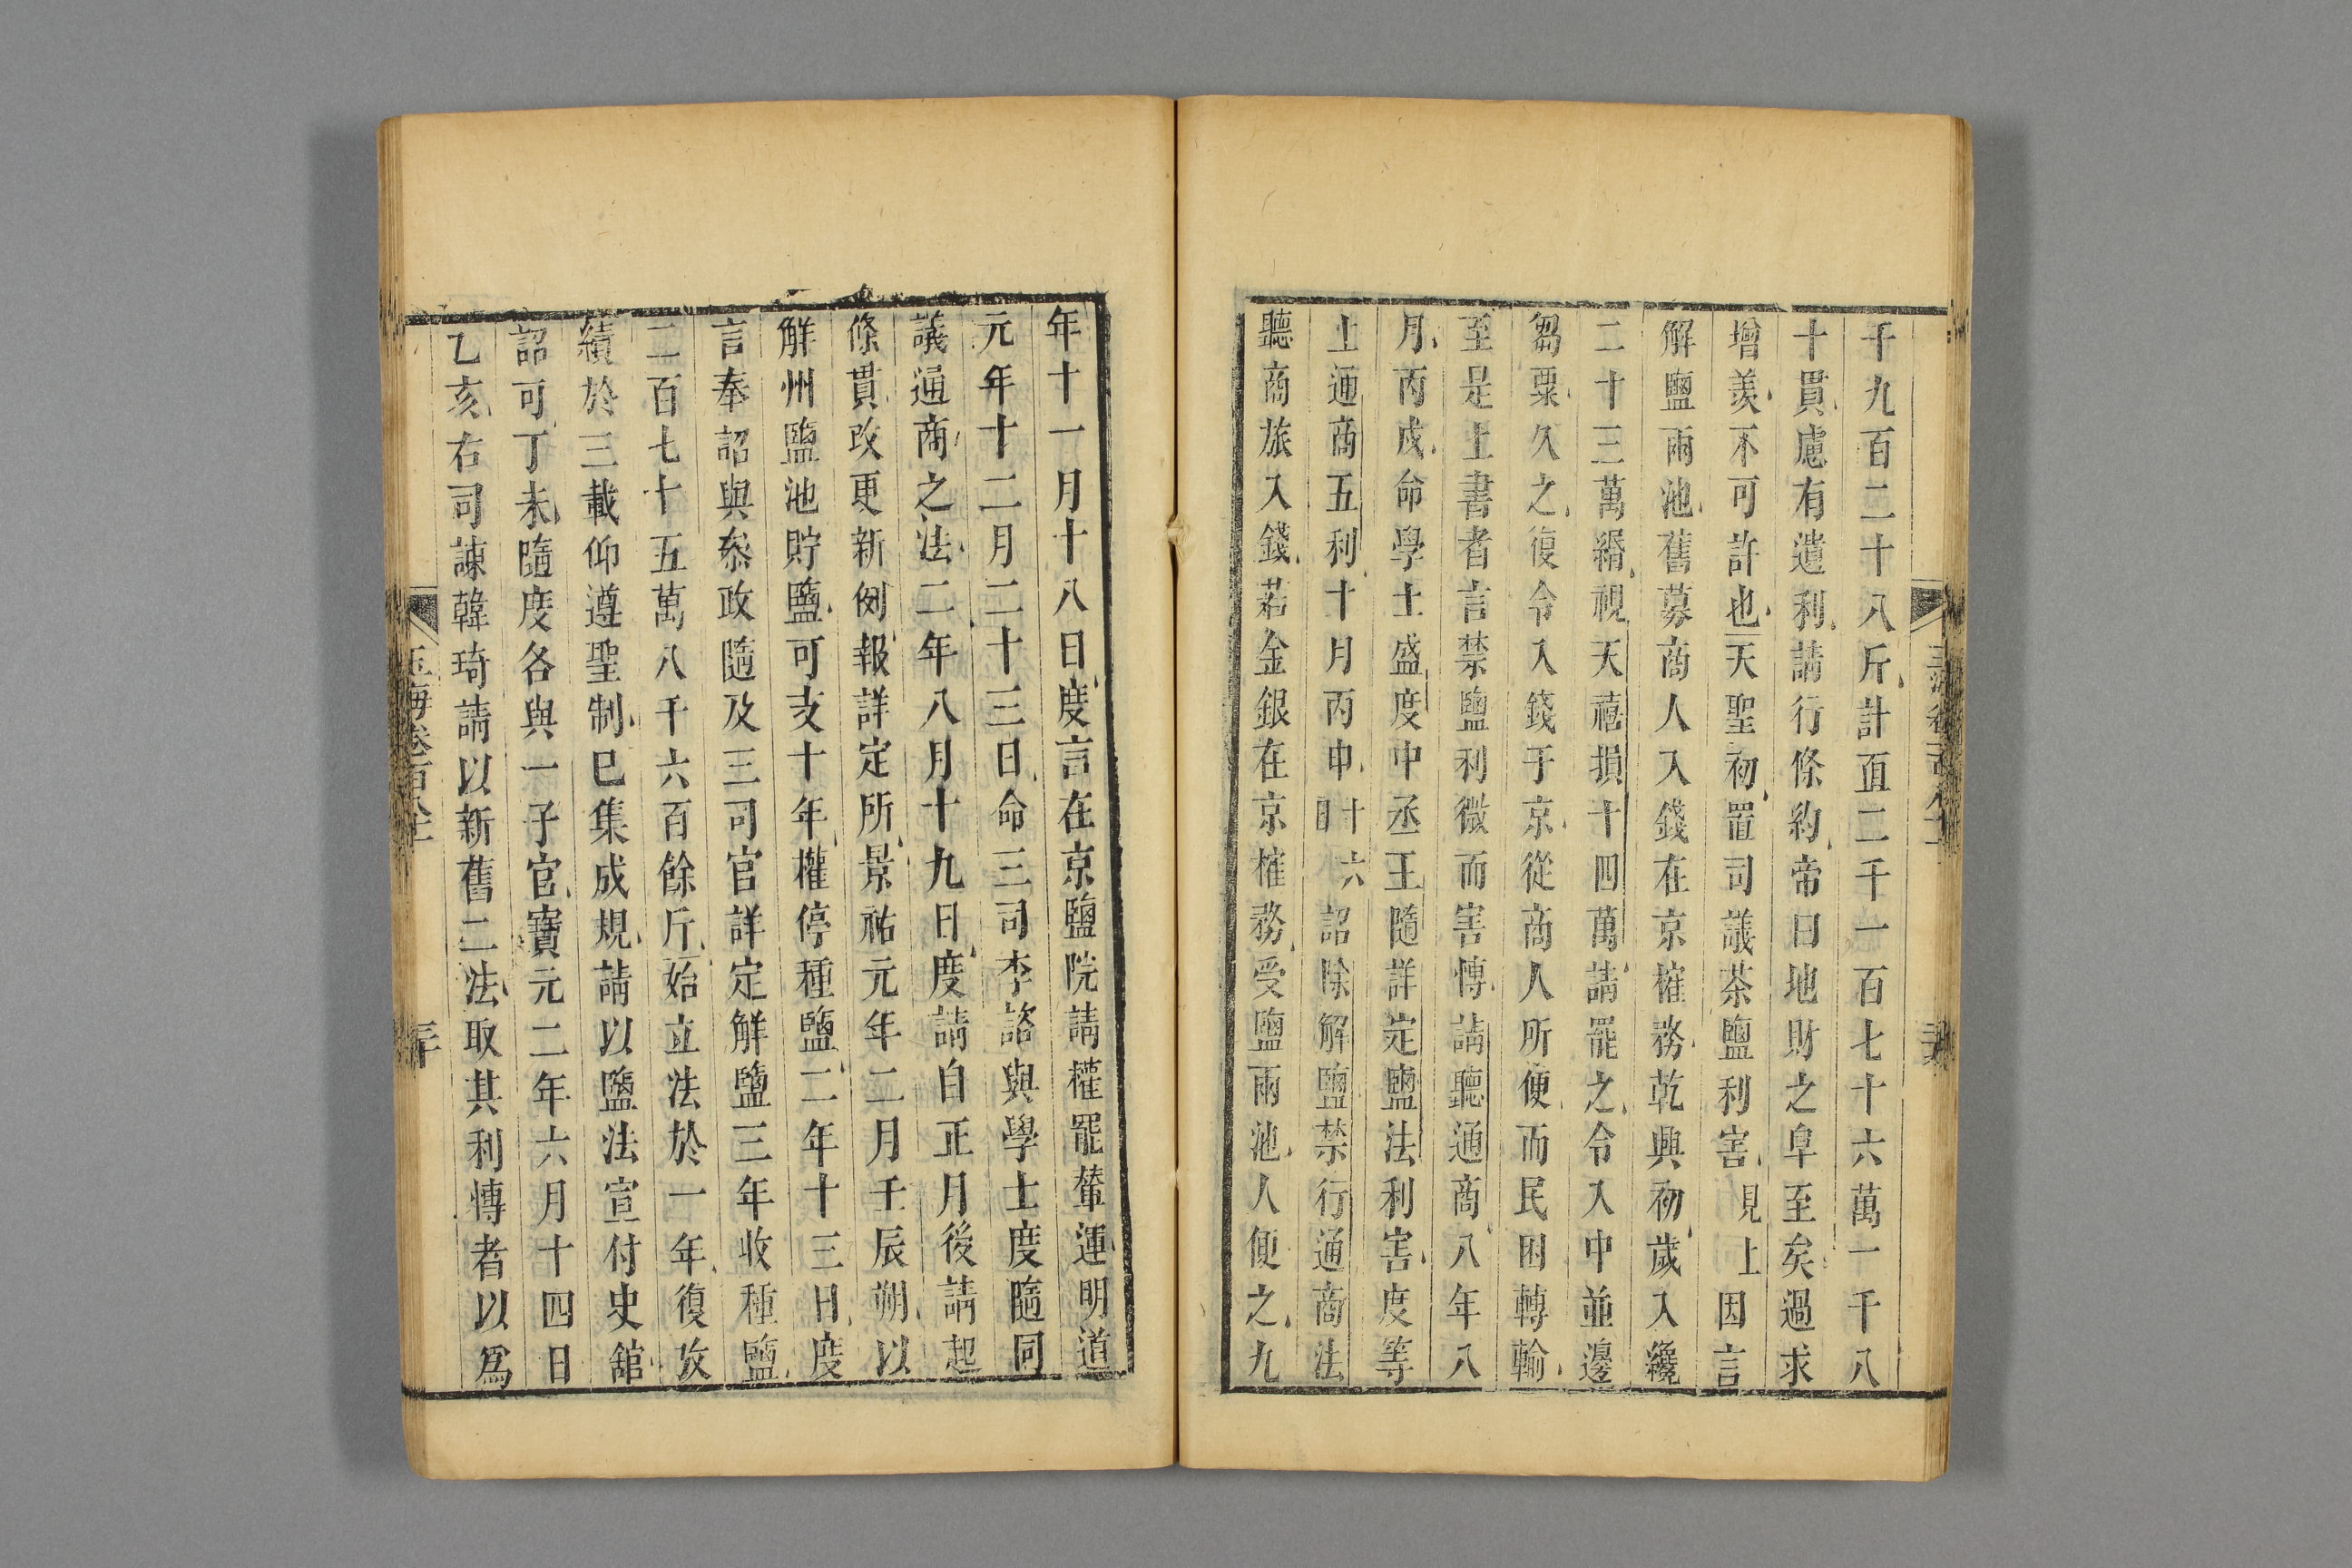 千九百二十八斤計直二千一百七十六萬一千八
十貫慮有遺利請行條約帝曰地財之阜至矣過求
增羡不可許也天聖初置司議茶鹽利害見上因言
解鹽兩池舊募商人入錢在京榷務乾興初歲入纔
二十三萬緡視天禧損十四萬請罷之令入中並邊
芻粟久之復令入錢于京從商人所便而民困轉輸
至是上書者言禁鹽利微而害慱請聽通商八年八
月丙戌命學士盛度中丞王隨詳定鹽法利害度等
上通商五利十月丙申十六日詔除解鹽禁行通商法
聽商旅入錢若金銀在京榷務受鹽兩池人便之九
年十一月十八日度言在京鹽院請權罷輦運明道
元年十二月二十三日命三司李諮與學士度隨同
議通商之法二年八月十九日度請自正月後請起
條貫改更新例報詳定所景祐元年二月壬辰朔以
解州鹽池貯鹽可支十年權停種鹽二年十三日度
言奉詔與叅政隨及三司官詳定解鹽三年收種鹽
二百七十五萬八千六百餘斤始立法於一年復攷
績於三載仰遵聖制已集成規請以鹽法宣付史舘
詔可丁未隨度各與一子官寶元二年六月十四日
乙亥右司諫韓琦請以新舊二法取其利慱者以爲
玉海卷百八十
三十